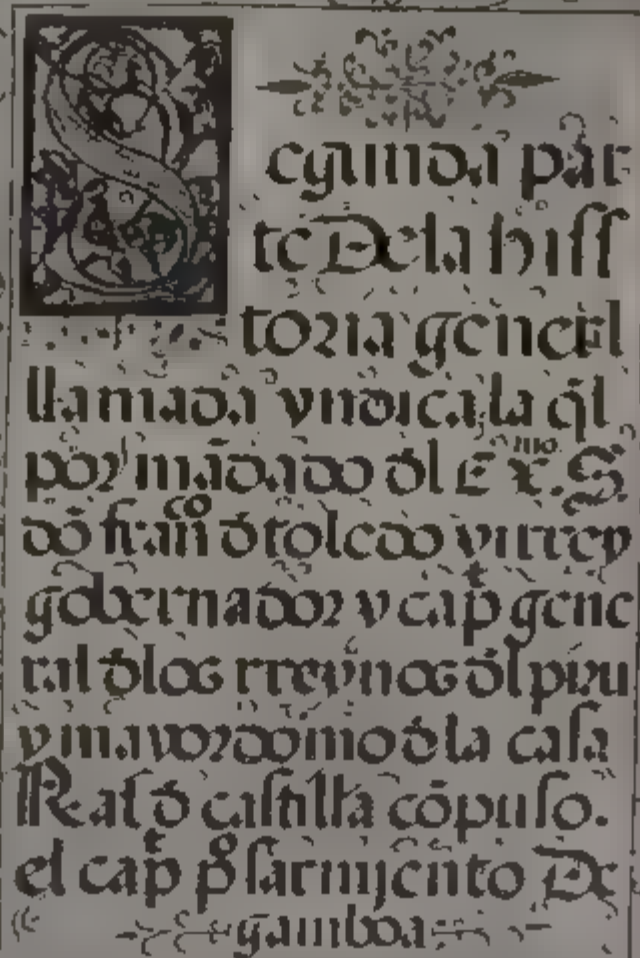 Segunda par
te De la hiss
toria general
llamada yndica, la q̄l
por mādado đl Exmo. S.
dō franco đ toledo virrey
gobernador y capt gene
ral đ los rreynos đl piru
y mayordomo đ la casa
Real đ castilla cōpuso.
el capt po sarmiento De
gamboa